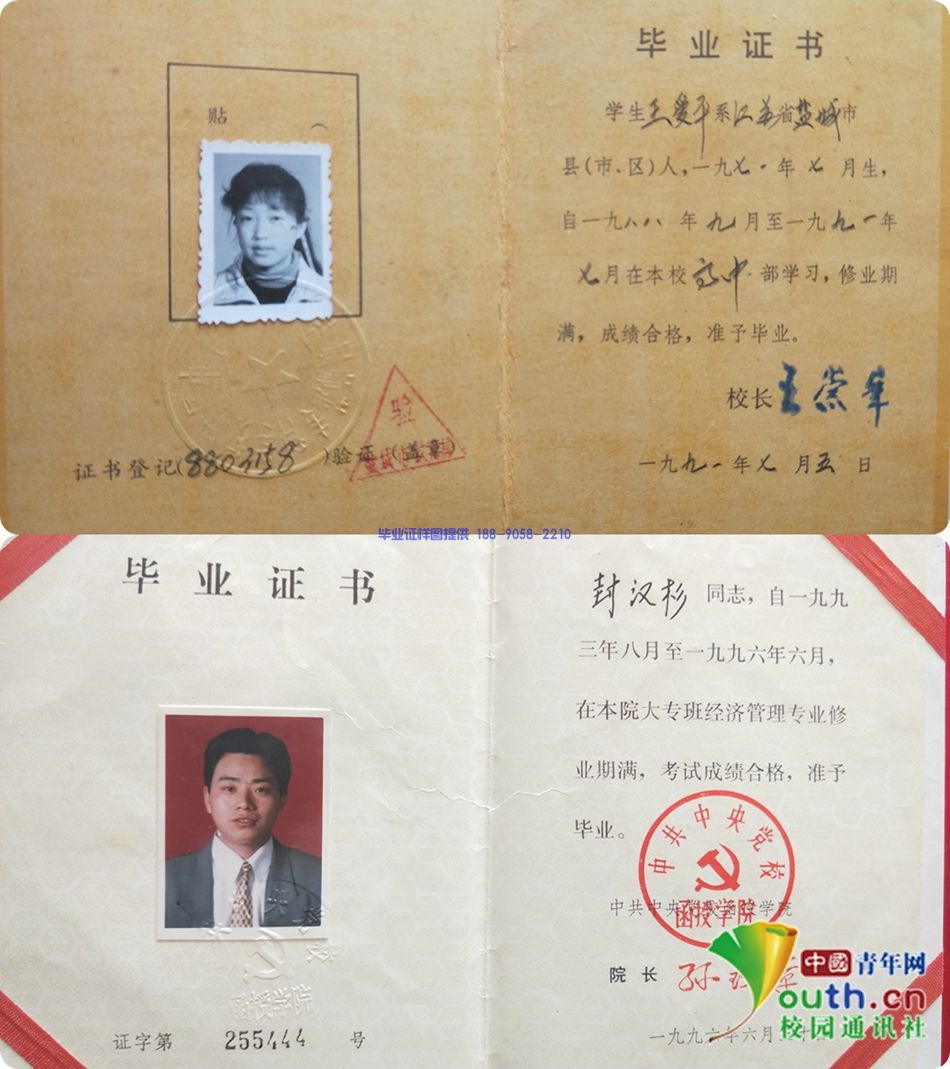 贴
证书登记(8803158)验证(盖章)
验
毕业证书
学生王爱平系江苏省盐城市
县(市、区)人,一九七一年七月生,
自一九八八年九月至一九九一年
七月在本校高中部学习,修业期
满,成绩合格,准予毕业。
校长
一九九一年七月五日
毕业证样图提供 188-9058-2210
毕业证书
证字第 255444 号
封汉杉同志,自一九九
三年八月至一九九六年六月,
在本院大专班经济管理专业修
业期满,考试成绩合格,准予
毕业。
中共中央党校
函授学院
中共中央党校函授学院
院长
一九九六年六月
中國青年网
youth.cn
校园通讯社